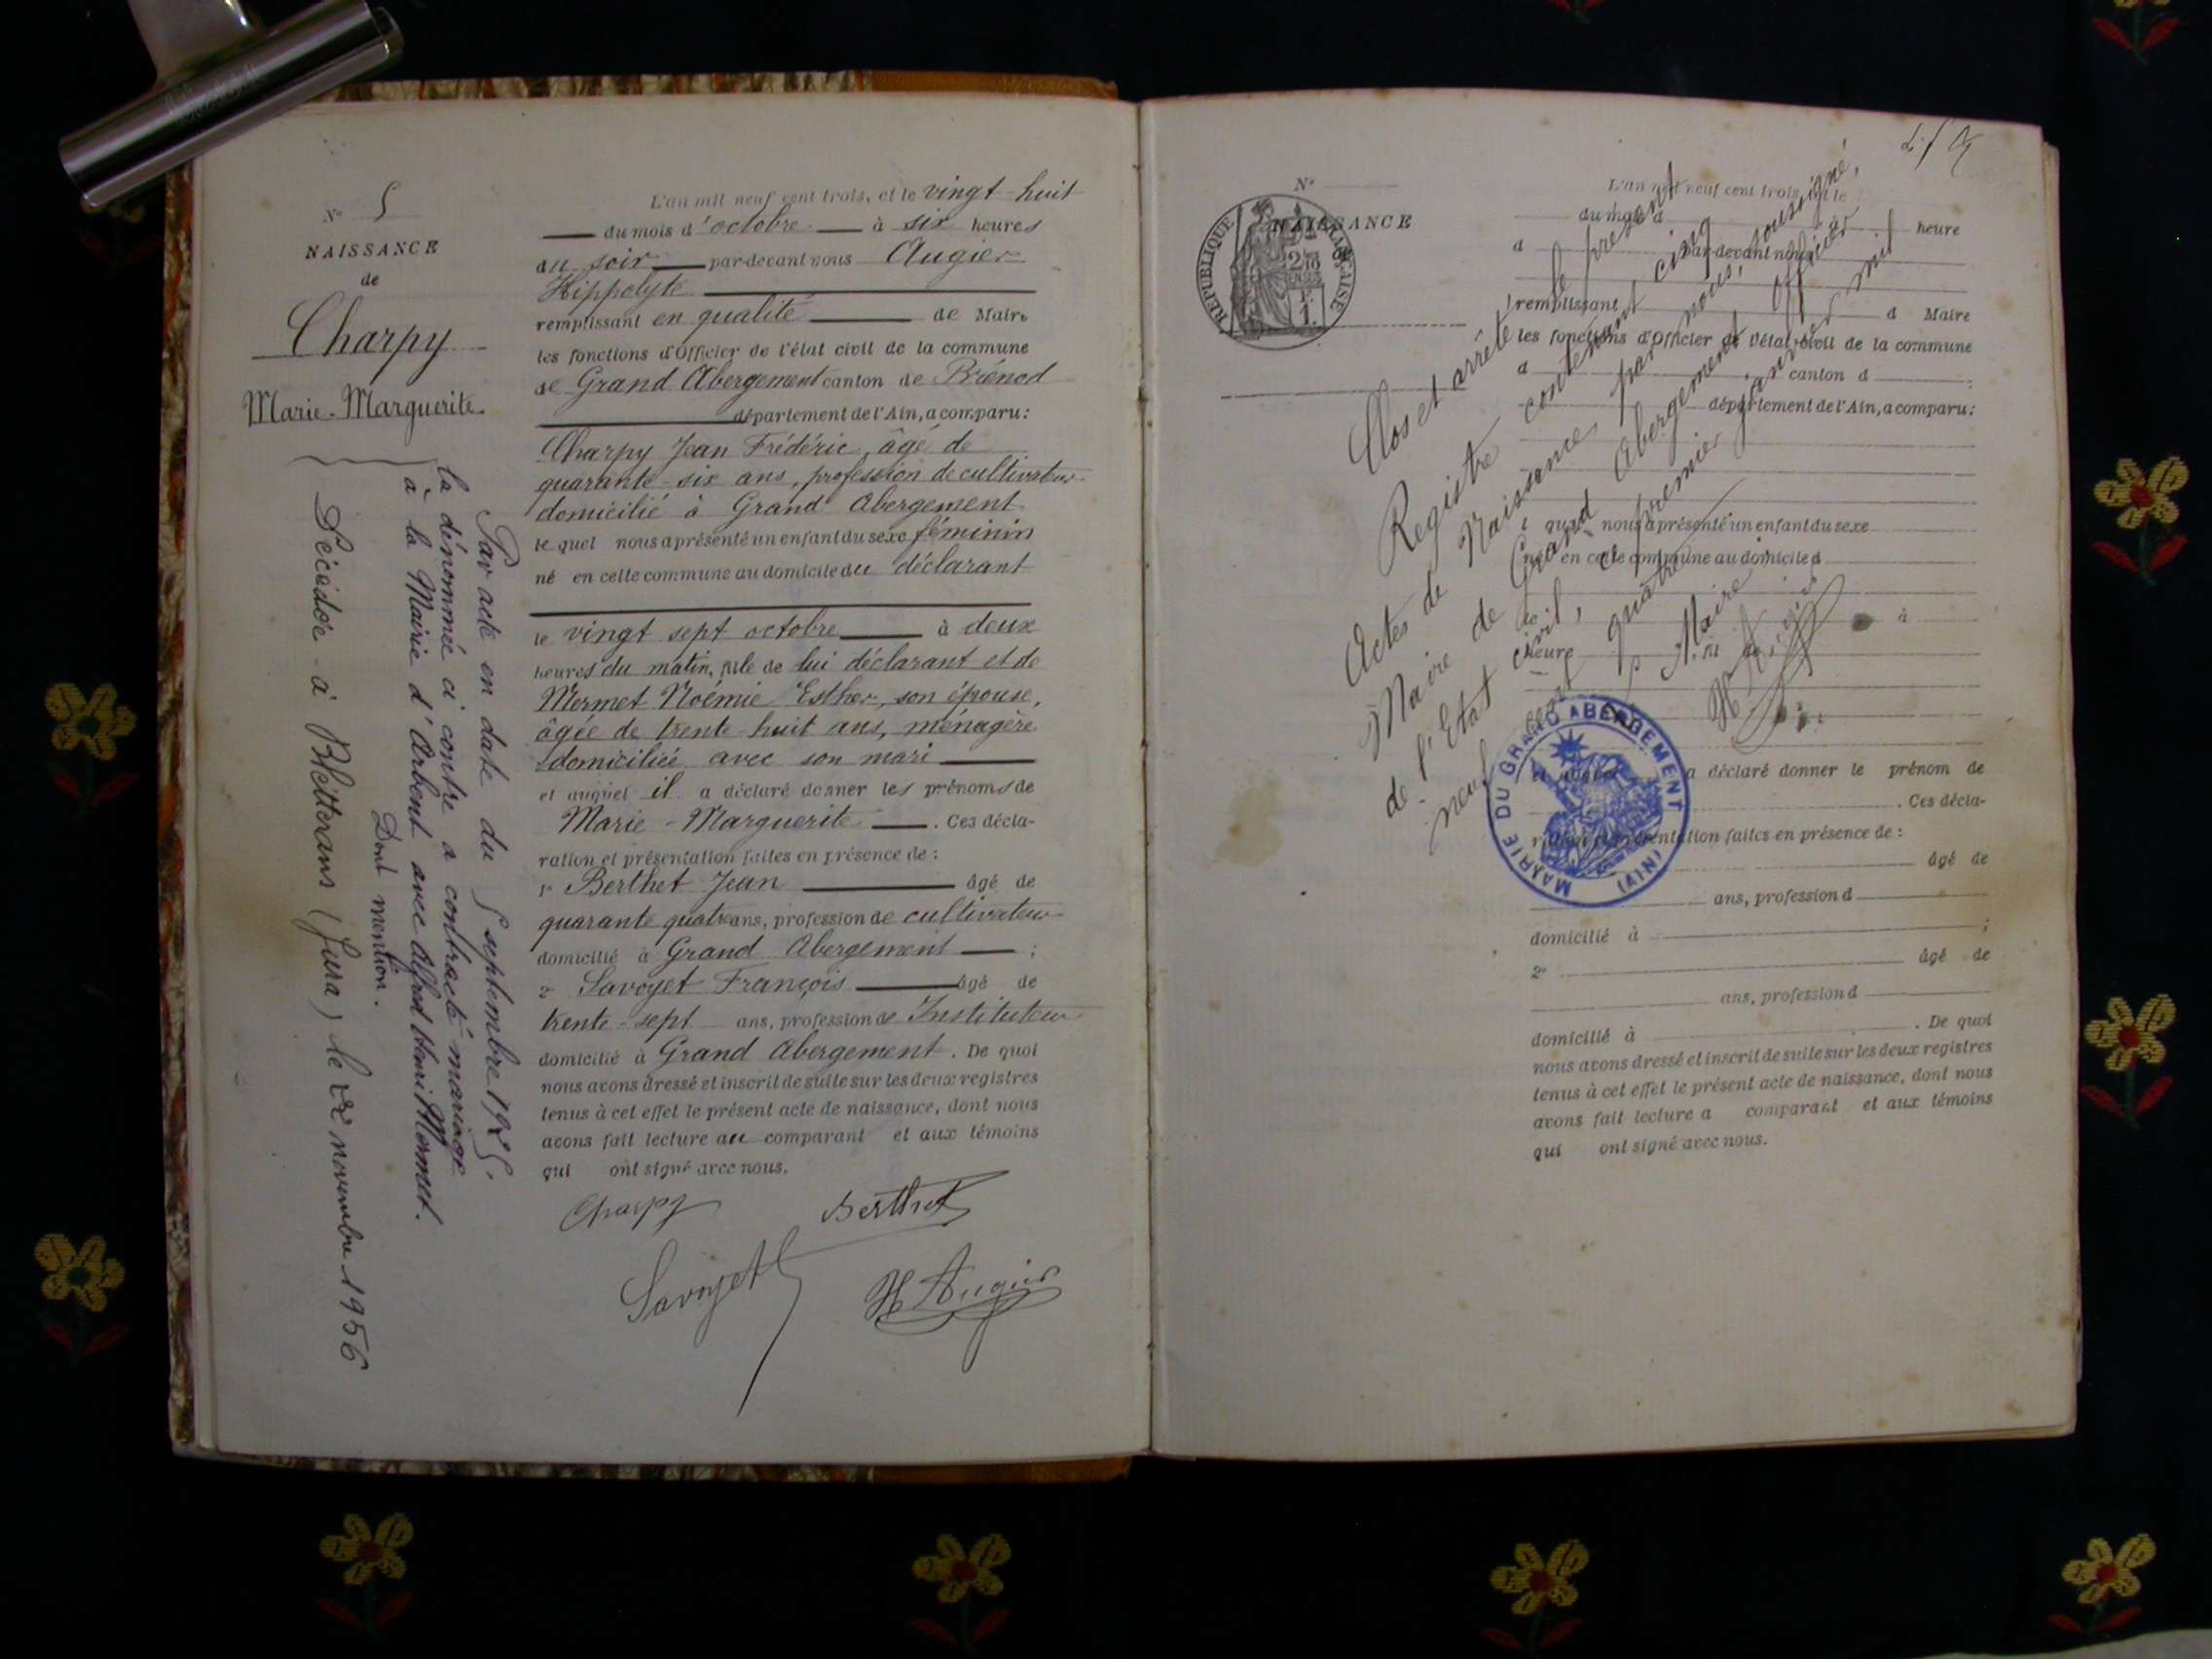 N° 5
NAISSANCE
de
Charpy
Marie-Marguerite.
Par acte en date du 5 septembre 1925,
la dénommée ci contre a contracté mariage
à la Mairie d'Arbent avec Alfred Henri Mermet.
Dont mention.
Décédée à Bletterans (Jura) le 22 novembre 1956
L'an mil neuf cent trois, et le vingt-huit
du mois d'octobre à six heures
du soir par-devant nous Augier
Hippolyte
remplissant en qualité de Maire
les fonctions d'Officier de l'état civil de la commune
de Grand Abergement canton de Brénod
département de l'Ain, a comparu:
Charpy Jean Frédéric, âgé de
quarante-six ans, profession de cultivateur
domicilié à Grand Abergement
lequel nous a présenté un enfant du sexe féminin
né en cette commune au domicile du déclarant
le vingt sept octobre à deux
heures du matin, fille de lui déclarant et de
Mermet Noémie Esther, son épouse,
âgée de trente-huit ans, ménagère
domiciliée avec son mari
et auquel il a déclaré donner les prénoms de
Marie-Marguerite. Ces décla-
ration et présentation faites en présence de:
1° Berthet Jean âgé de
quarante quatre ans, profession de cultivateur
domicilié à Grand Abergement;
2° Savoyet François âgé de
trente-sept ans, profession de Instituteur
domicilié à Grand Abergement. De quoi
nous avons dressé et inscrit de suite sur les deux registres
tenus à cet effet le présent acte de naissance, dont nous
avons fait lecture au comparant et aux témoins
qui ont signé avec nous.
Charpy Berthet
Savoyet H Augier
N°
NAISSANCE
RÉPUBLIQUE FRANÇAISE
L'an mil neuf cent trois, et le
du mois d à heure
d par-devant nous
remplissant d Maire
les fonctions d'Officier de l'état civil de la commune
d canton d
département de l'Ain, a comparu:
l quel nous a présenté un enfant du sexe
né en cette commune au domicile d
le à
heure
et auquel a déclaré donner le prénom de
. Ces décla-
ration et présentation faites en présence de:
âgé de
ans, profession d
domicilié à ;
2° âgé de
ans, profession d
domicilié à . De quoi
nous avons dressé et inscrit de suite sur les deux registres
tenus à cet effet le présent acte de naissance, dont nous
avons fait lecture a comparant et aux témoins
qui ont signé avec nous.
Clos et arrêté le présent
Registre contenant cinq
Actes de Naissance, par nous, soussigné,
Maire de Grand Abergement Officier
de l'Etat civil, ce premier janvier mil
neuf cent quatre
Le Maire
H Augier
MAIRIE DU GRAND ABERGEMENT
(AIN)